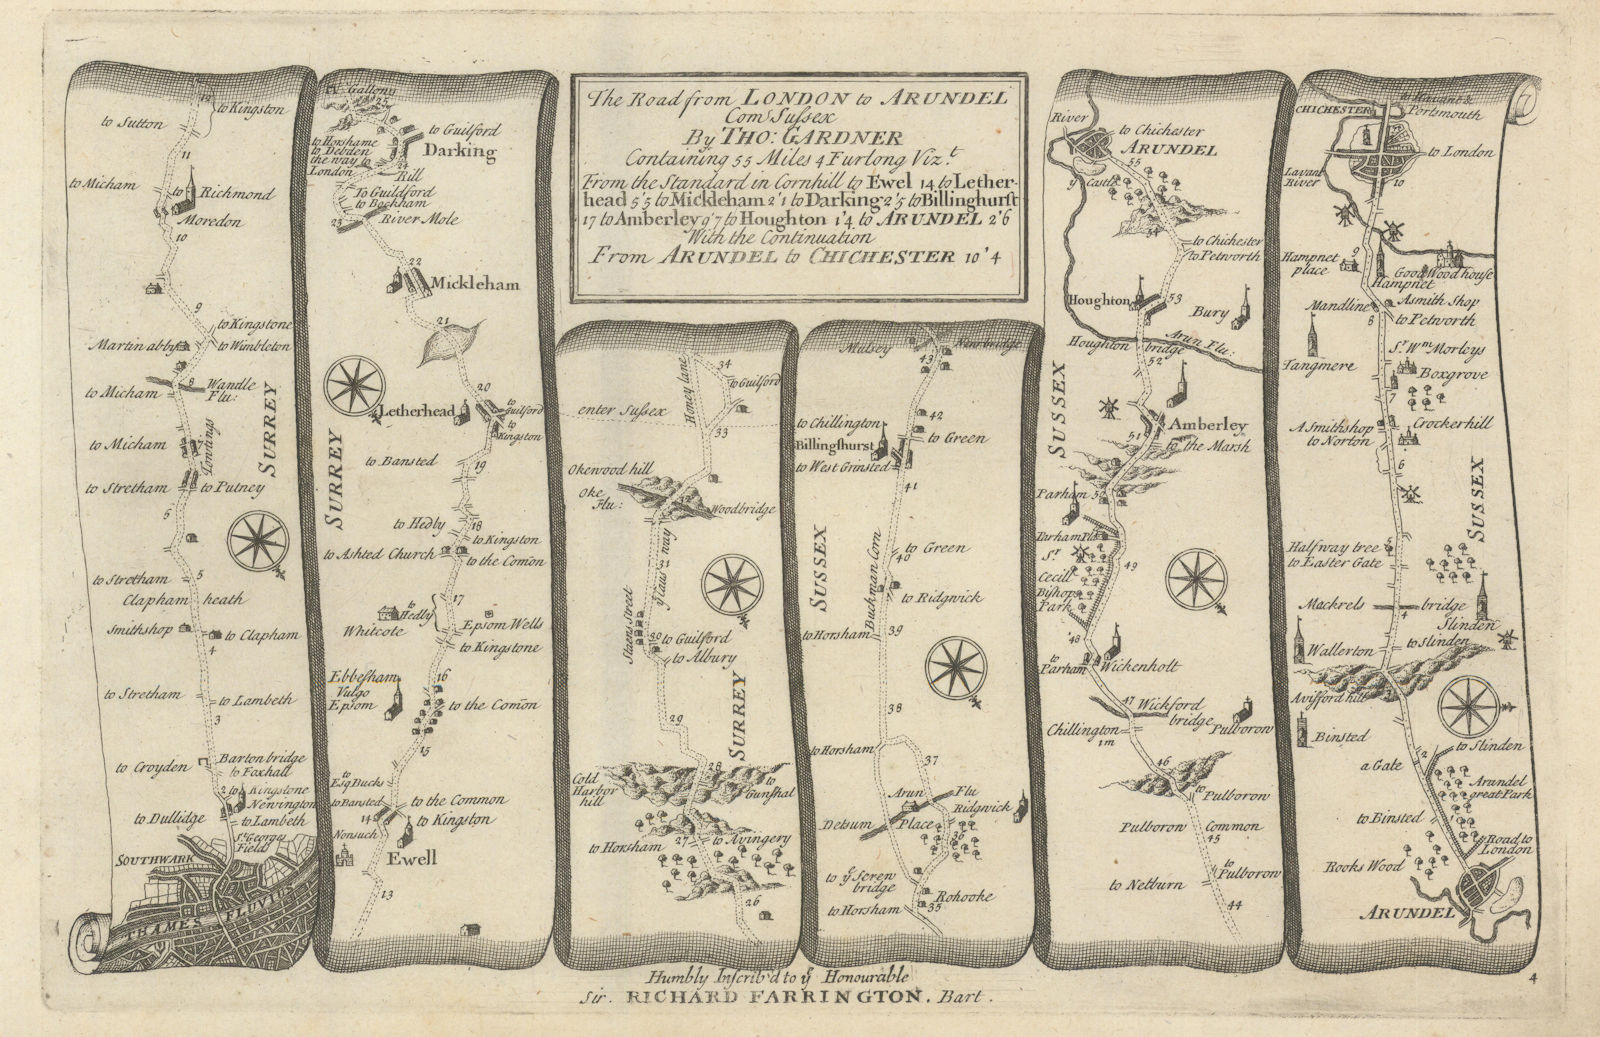 The Road from LONDON to ARUNDEL
Com Suſsex
By THO: GARDNER
Containing 55 Miles 4 Furlong Viz.t
From the Standard in Cornhill to Ewel 14 to Lether-
head 5'5 to Mickleham 2'1 to Darking 2'5 to Billinghurſt
17 to Amberley 9'7 to Houghton 1'4 to ARUNDEL 2'6
With the Continuation
From ARUNDEL to CHICHESTER 10'4
12
to Kingston
to Sutton
11
to Micham
to Richmond
Moredon
10
9
to Kingstone
Martin abby
to Wimbleton
8
Wandle
Flu:
to Micham
SURREY
to Micham
Towtings
to Stretham
to Putney
6
5
to Stretham
Clapham heath
Smithshop
to Clapham
4
to Stretham
to Lambeth
3
Barton bridge
to Croyden
to Foxhall
2
to Kingstone
Newington
to Dullidge
to Lambeth
St. Georges
Fields
SOUTHWARK
THAMES FLUVIUS
Gallows
25
to Guilford
to Horshame
to Debden
the way to
London
Darking
24
Rill
To Guildford
to Bockham
River Mole
23
22
Mickleham
21
20
Letherhead
to
Guilford
to
Kingston
SURREY
to Bansted
19
to Hedly
18
to Kingston
to Ashted Church
to the Comōn
17
to
Hedly
Whitcote
Epsom Wells
to Kingstone
Ebbesham
Vulgo
Epsom
16
to the Comōn
15
to
Esq Bucks
to Bansted
to the Common
14
to Kingston
Nonsuch
Ewell
13
34
to Guilford
Honey lane
enter Suſsex
33
Okewood hill
Oke
Flu:
Woodbridge
31
ye Caus way
Staen Street
30
to Guilford
to Albury
SURREY
29
28
Cold
Harbor
hill
to
Gunshal
27
to Avingery
to Horsham
26
Mulsey
43
New bridge
42
to Chillington
to Green
Billingſhurst
to West Grinsted
41
SUSSEX
Buckman Corn
to Green
40
to Ridgwick
to Horsham
39
38
to Horsham
37
Arun Flu
Ridgwick
Detsum Place
36
to ye Seren
bridge
Rohooke
to Horsham
35
River
to Chichester
ARUNDEL
55
ye Castle
54
to Chichester
to Petworth
Houghton
53
Bury
Houghton bridge
Arun Flu:
52
SUSSEX
Amberley
51
to the Marsh
Parham
50
Parham Pls
Sr.
Cecill
Bishops
Park
49
48
to
Parham
Wickenholt
47
Wickford
bridge
Chillington
1m
Pulborow
46
to Pulborow
Pulborow Common
45
to
Pulborow
to Netburn
44
CHICHESTER
to Havant &
Portsmouth
to London
Lavant
River
10
9
Hampnet
place
Good Wood house
Hampnet
Mandline
Asmith Shop
8
to Petworth
Tangmere
Sr. Wm. Morleys
Boxgrove
7
A Smithshop
to Norton
Crockerhill
6
SUSSEX
Halfway tree
5
to Easter Gate
Mackrels bridge
4
Slinden
Wallerton
to Slinden
3
Avisford hill
Binsted
2
to Slinden
a Gate
Arundel
great Park
to Binsted
1
Road to
London
Rooks Wood
ARUNDEL
Humbly Inſcrib'd to ye Honourable
Sir. RICHARD FARRINGTON. Bart.
4